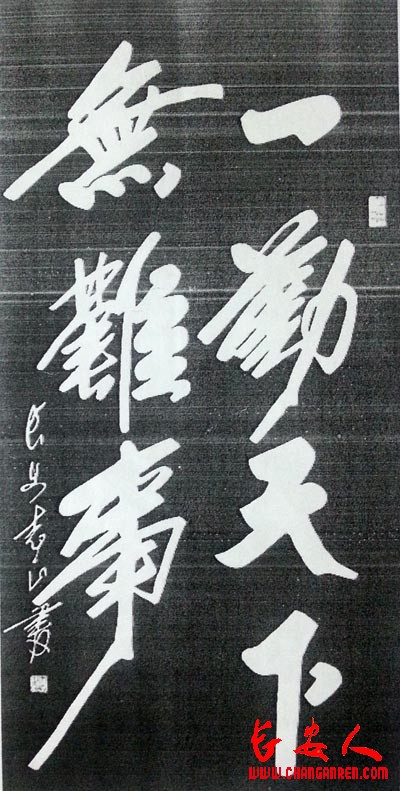 一勤天下
無難事
长安志山書
长安人
WWW.CHANGANREN.COM